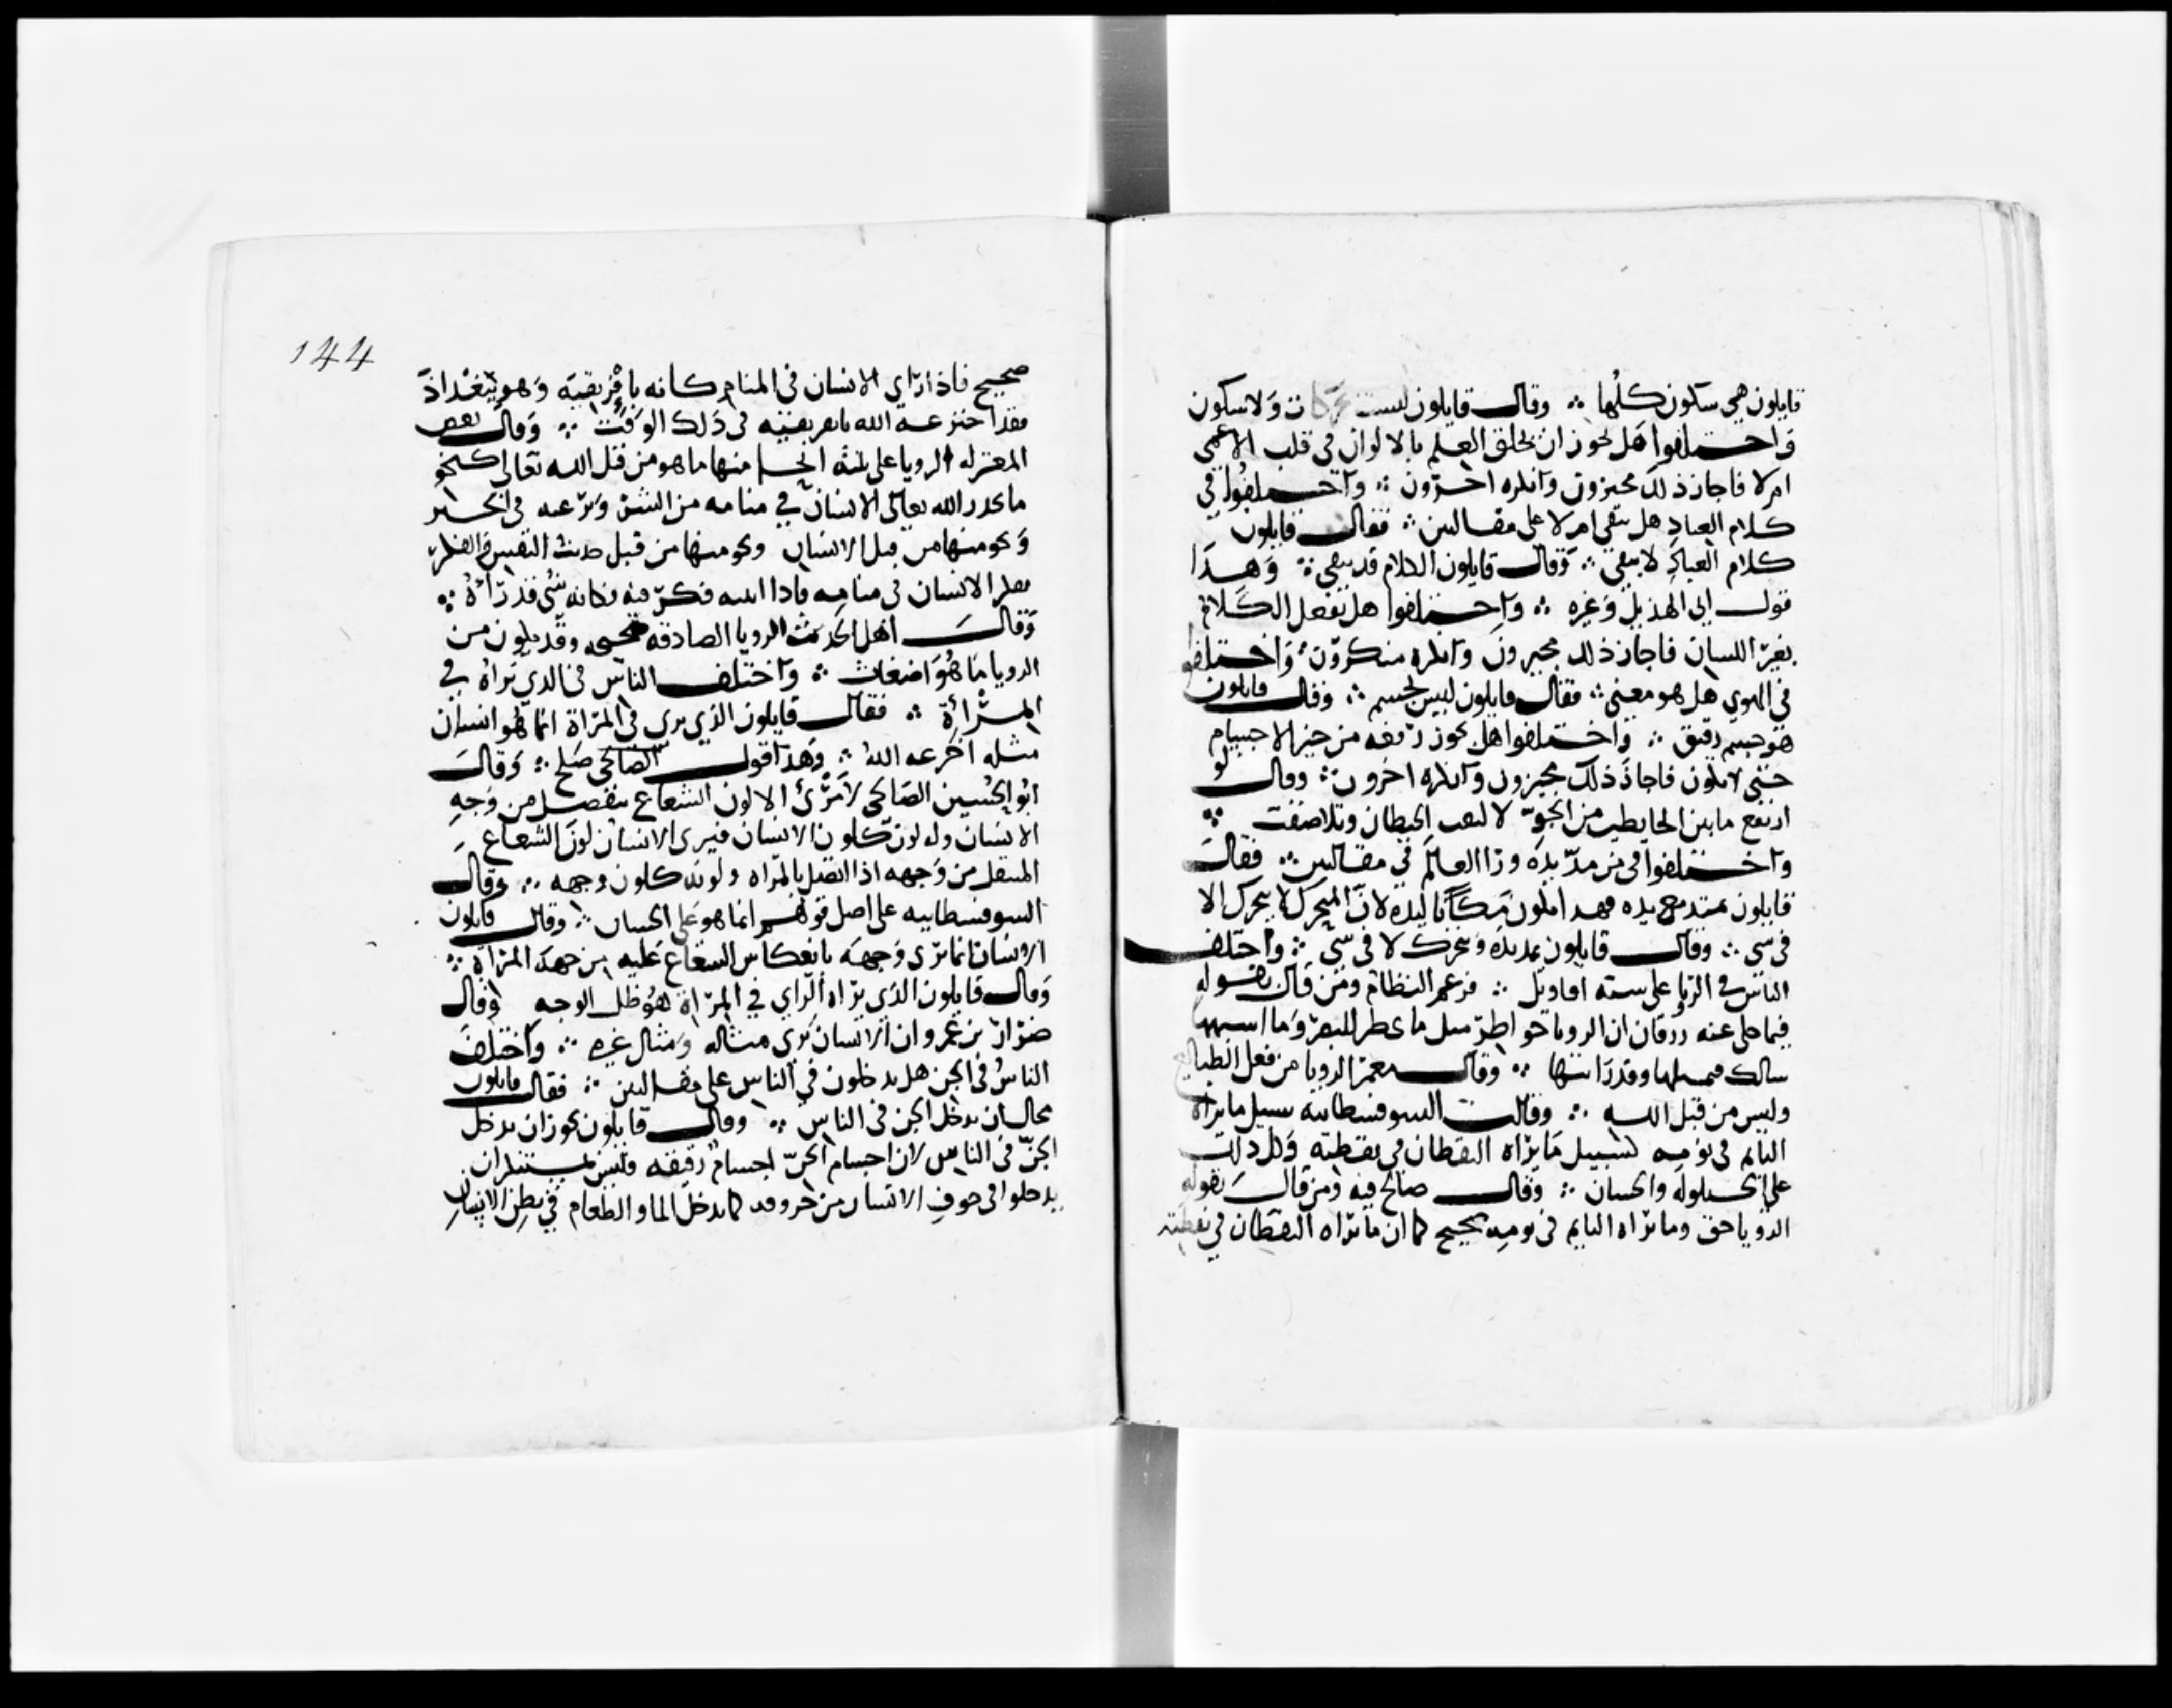 قايلون هي سكون كلها ∴ وقال قايلون ليست حركات ولا سكون
واختلفوا هل يجوز ان يخلق العلم بالالوان في قلب الاعمى
ام لا فاجاز ذلك مجيزون وانكره اخرون ∴ واختلفوا في
كلام العباد هل يبقى ام لا على مقالتين ∴ فقال قايلون
كلام العباد لا يبقى ∴ وقال قايلون الكلام قد يبقى ∴ وهذا
قول ابي الهذيل وغيره ∴ واختلفوا هل تفعل الكلام
بغير اللسان فاجاز ذلك مجيزون وانكره منكرون ∴ واختلفوا
في الهوى هل هو معنى ∴ فقال قايلون ليس بجسم ∴ وقال قايلون
هو جسم رقيق ∴ واختلفوا هل يجوز رفعه من حيز الاجسام
حتى لا يكون فاجاز ذلك مجيزون وانكره اخرون ∴ وقال لو
ارتفع ما بين الحايطين من الجو لا الحيطان وتلاصقت ∴
واختلفوا في من مد يده ورا العالم في مقالتين ∴ فقال
قايلون يمتد مع يده فهذا يكون مكانا ليده لان المتحرك لا يتحرك الا
في شي ∴ وقال قايلون يمد يده وتتحرك لا في شي ∴ واختلف
الناس في الرويا على سته اقاويل ∴ فزعم النظام ومن قال بقوله
فيما حكى عنه زرقان ان الرويا خواطر مثل ما يخطر البصر وما اشبهها
ببالك فمثلها وقد رايتها ∴ وقال معمر الرويا من فعل الطبايع
وليس من قبل الله ∴ وقالت السوفسطاييه سبيل ما يراه
النايم في نومه كسبيل ما يراه اليقظان في يقظته وكل ذلك
على الخيلوله والحسبان ∴ وقال صالح قبه ومن قال بقوله
الرويا حق وما يراه النايم في نومه صحيح كما ان ما يراه اليقظان في يقظته
144
صحيح فاذا راي الانسان في المنام كانه بافريقيه وهو ببغداذ
فقد اخترعه الله بافريقيه في ذلك الوقت ∴ وقال بعض
المعتزله الرويا على ثلثه انحا منها ما هو من قبل الله تعالى كنحو
ما يحذر الله تعالى الانسان في منامه من الشر ويرغبه في الخير
ونحو منها من قبل الانسان ونحو منها من قبل حديث النفس والفكر
يفكر الانسان في منامه فاذا انتبه فكر فيه فكانه شي قد راه ∴
وقال اهل الحديث الرويا الصادقه صحيحه وقد يكون من
الرويا ما هو اضغاث ∴ واختلف الناس في الذي يراه في
المراة ∴ فقال قايلون الذي يرى في المراة انما هو انسان
مثله اخترعه الله ∴ وهذا قول الصالحي صلح ∴ وقال
ابو الحسين الصالحي لا مرئ الا لون الشعاع ينفصل من وجه
الانسان وله لون كلون الانسان فيرى الانسان لون الشعاع
المنتقل من وجهه اذا اتصل بالمراه ولونه كلون وجهه ∴ وقال
السوفسطاييه على اصل قولهم انما هو على الحسبان ∴ وقال قايلون
الانسان انما يرى وجهه بانعكاس الشعاع عليه من جهة المراة ∴
وقال قايلون الذي يراه الراي في المراة هو ظل الوجه وقال
ضرار بن عمرو ان الانسان يرى مثاله ومثال غيره ∴ واختلف
الناس في الجن هل يدخلون في الناس على مقالتين ∴ فقال قايلون
محال ان يدخل الجن في الناس ∴ وقال قايلون يجوز ان يدخل
الجن في الناس لان اجسام الجن اجسام رقيقه فليس بمستنكر ان
يدخلوا في جوف الانسان من خروقه كما يدخل الما والطعام في بطن الانسان